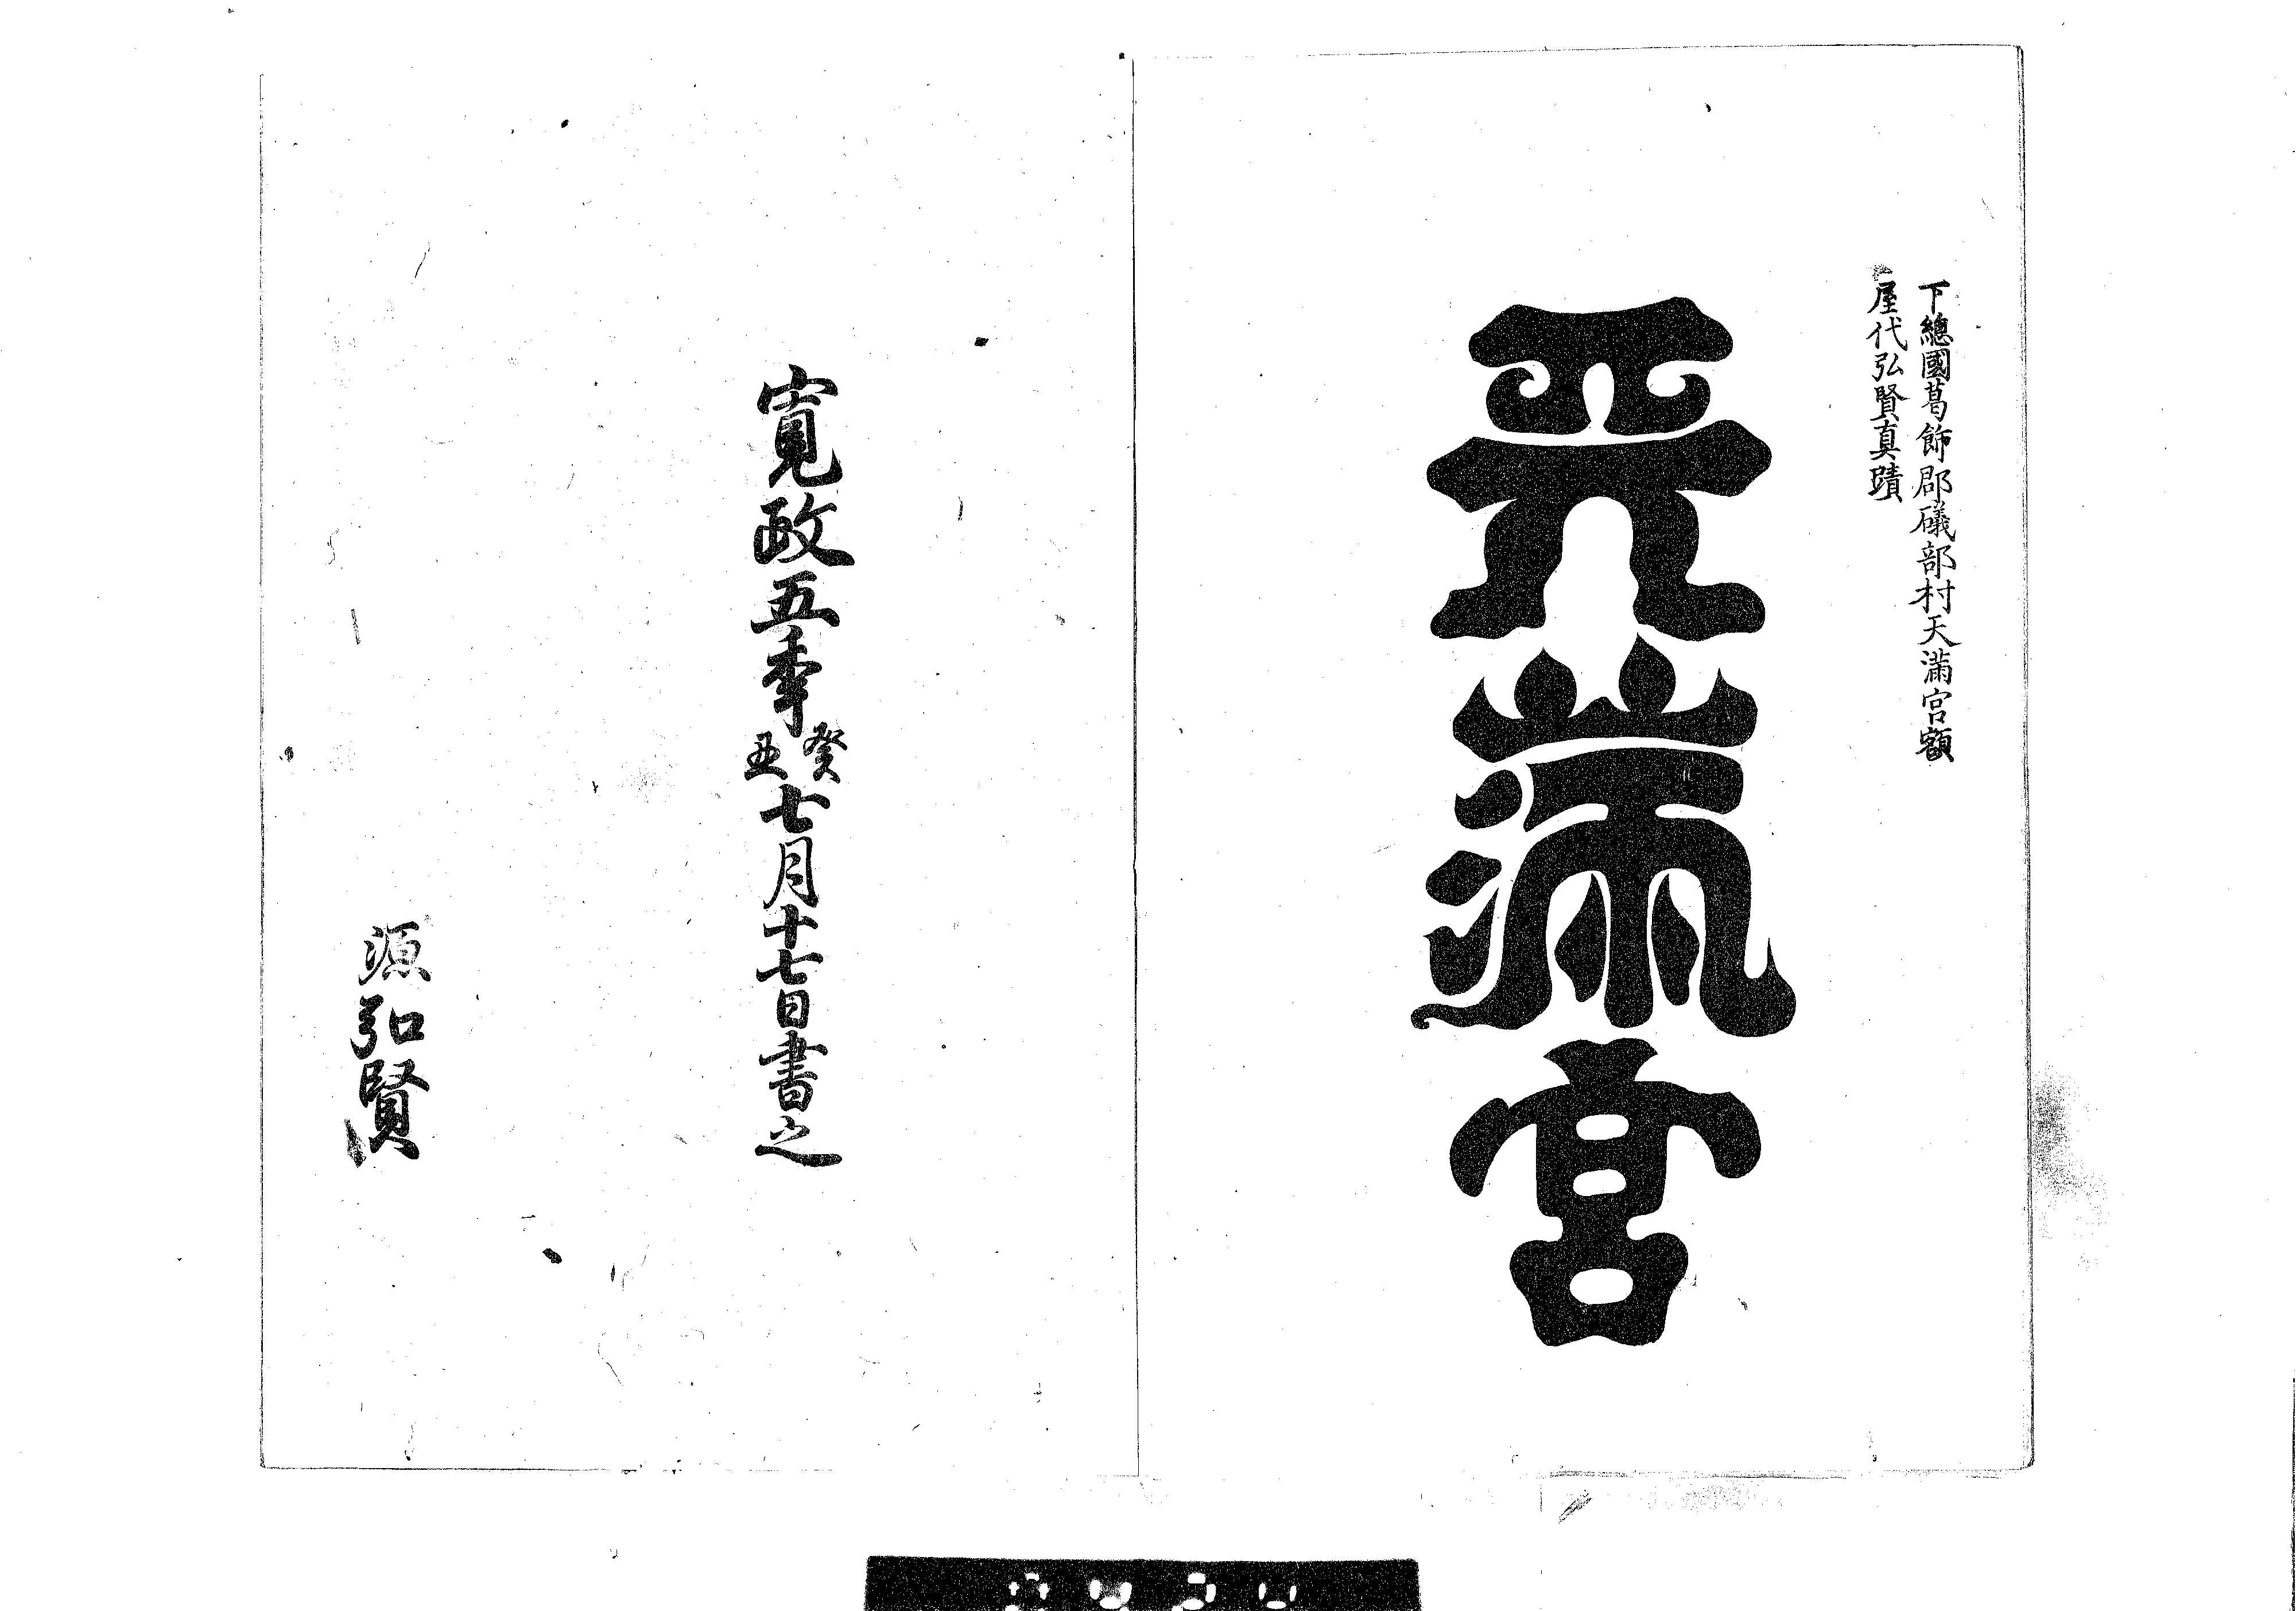 下總國葛飾郡礒部村天滿宮額
屋代弘賢真蹟
天滿宮
寛政五年癸丑七月十七日書之
源弘賢